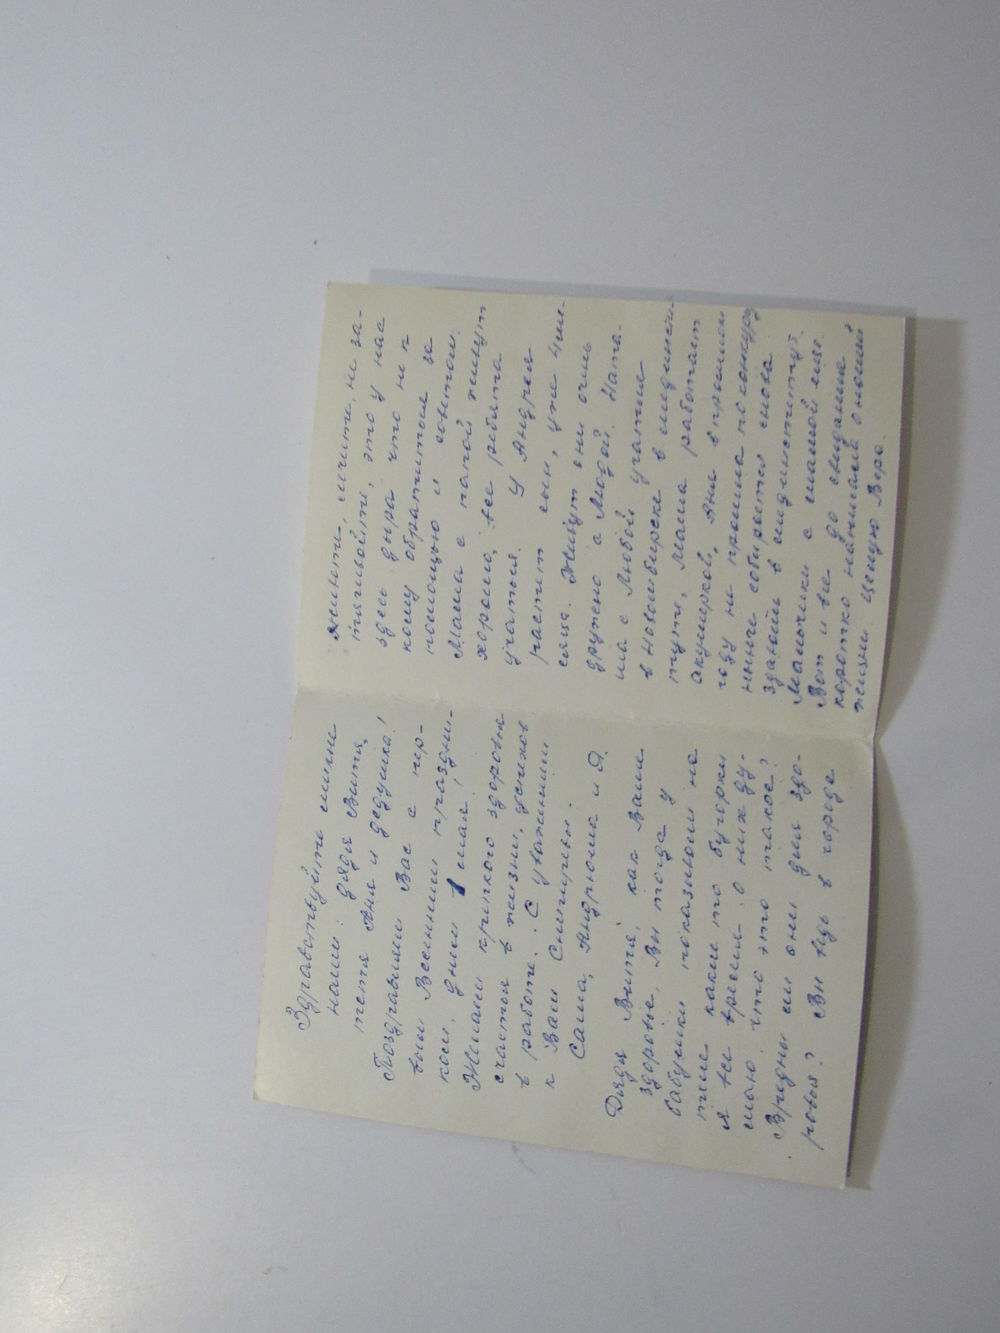 Здравствуйте милые
наши: дядя Витя,
тетя Аня и дедушка!
Поздравляем Вас с пер-
вым Весенним праздни-
ком, днем 1 мая!
Желаем крепкого здоровья
счастья в жизни, успехов
в работе. С уважением
к Вам Снигиревы -
Саша, Андрюша и Я.
Дядя Витя, как Ваше
здоровье, Вы тогда у
бабушки показывали на
теле какие то бугорки
я все время о них ду-
маю. что это такое?
Вредны ли они для здо-
ровья? Вы ведь в городе
живёте, лечите, не за-
тягивайте, это у нас
здесь дыра что не к
кому обратиться за
помощью и советом.
Мама с папой живут
хорошо, все ребята
учатся. У Андрея
растет сын, уже 4 ме-
сяца. Живут они очень
дружно с Людой. Ната-
ша с Любой учатся
в Новосибирске в мединсти-
туте, Маша работает
акушеркой, Аня в прошлом
году не прошла по конкурсу
нынче собирается снова
сдавать в мединститут.
Мальчики с мамой еще.
Вот и все до свидания
коротко написала о нашей
жизни. Целую Вера.